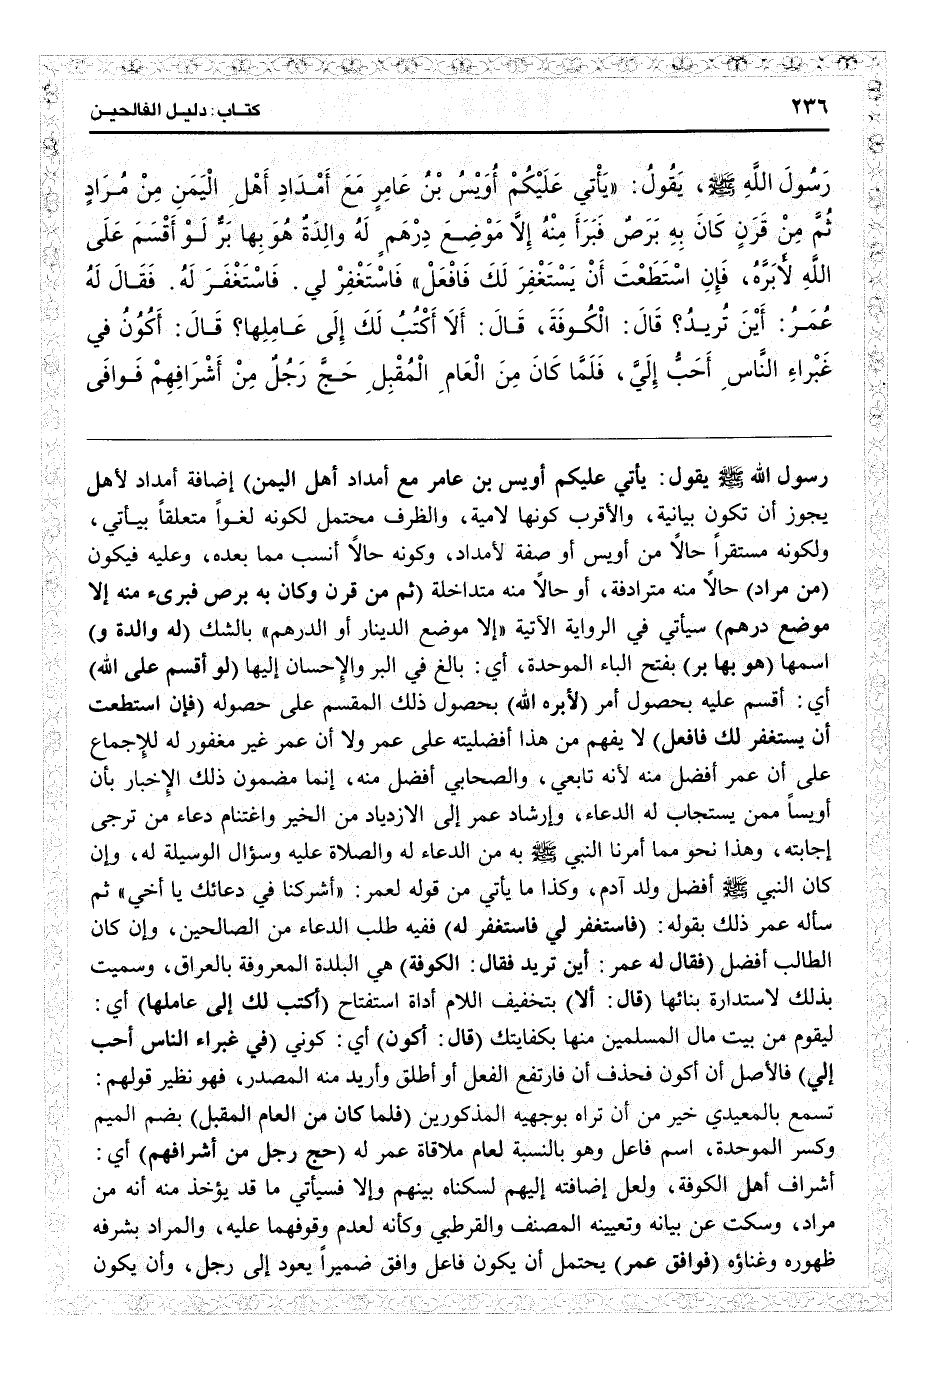 ٢٣٦
كتـاب: دليـل الفالحيـن
رَسُولَ اللَّهِ ﷺ، يَقُولُ: «يَأْتي عَلَيْكُمْ أُوَيْسُ بْنُ عَامِرٍ مَعَ أَمْـدَادِ أَهْلِ الْيَمَنِ مِنْ مُـرَادٍ
ثُمَّ مِنْ قَرَنٍ كَانَ بِهِ بَرَصٌ فَبَرَأَ مِنْهُ إِلاَّ مَوْضِعَ دِرْهَمٍ لَهُ والِدَةٌ هُوَ بِها بَرٌّ لَـوْ أَقْسَمَ عَلَى
اللَّهِ لأَبَرَّهُ، فَإِنِ اسْتَطَعْتَ أَنْ يَسْتَغْفِرَ لَكَ فَافْعَلْ» فَاسْتَغْفِرْ لي. فَاسْتَغْفَـرَ لَهُ. فَقَـالَ لَهُ
عُمَـرُ: أَيْنَ تُريـدُ؟ قَالَ: الْكُـوفَةَ، قَـالَ: أَلاَ أَكْتُبُ لَكَ إِلَى عَـامِلِها؟ قَـالَ: أَكُونُ في
غَبْراءِ النَّاسِ أَحَبُّ إِلَيَّ، فَلَمَّا كَانَ مِنَ الْعَامِ الْمُقْبِلِ حَـجَّ رَجُلٌ مِنْ أَشْرَافِهِمْ فَـوافَى
رسول الله ﷺ يقول: يأتي عليكم أويس بن عامر مع أمداد أهل اليمن) إضافة أمداد لأهل
يجوز أن تكون بيانية، والأقرب كونها لامية، والظرف محتمل لكونه لغـواً متعلقاً بيـأتي،
ولكونه مستقراً حالاً من أويس أو صفة لأمداد، وكونه حالاً أنسب مما بعده، وعليه فيكون
(من مراد) حالاً منه مترادفة، أو حالاً منه متداخلة (ثم من قرن وكان به برص فبرىء منه إلا
موضع درهم) سيأتي في الرواية الآتية «إلا موضع الدينار أو الدرهم» بالشك (له والدة و)
اسمها (هو بها بر) بفتح الباء الموحدة، أي: بالغ في البر والإحسان إليها (لو أقسم على الله)
أي: أقسم عليه بحصول أمر (لأبره الله) بحصول ذلك المقسم على حصوله (فإن استطعت
أن يستغفر لك فافعل) لا يفهم من هذا أفضليته على عمر ولا أن عمر غير مغفور له للإجماع
على أن عمر أفضل منه لأنه تابعي، والصحابي أفضل منه، إنما مضمون ذلك الإخبار بأن
أويساً ممن يستجاب له الدعاء، وإرشاد عمر إلى الازدياد من الخير واغتنام دعاء من ترجى
إجابته، وهذا نحو مما أمرنا النبي ﷺ به من الدعاء له والصلاة عليه وسؤال الوسيلة له، وإن
كان النبي ﷺ أفضل ولد آدم، وكذا ما يأتي من قوله لعمر: «أشركنا في دعائك يا أخي» ثم
سأله عمر ذلك بقوله: (فاستغفر لي فاستغفر له) ففيه طلب الدعاء من الصالحين، وإن كان
الطالب أفضل (فقال له عمر: أين تريد فقال: الكوفة) هي البلدة المعروفة بالعراق، وسميت
بذلك لاستدارة بنائها (قال: ألا) بتخفيف اللام أداة استفتاح (أكتب لك إلى عاملها) أي:
ليقوم من بيت مال المسلمين منها بكفايتك (قال: أكون) أي: كوني (في غبراء الناس أحب
إلي) فالأصل أن أكون فحذف أن فارتفع الفعل أو أطلق وأريد منه المصدر، فهو نظير قولهم:
تسمع بالمعيدي خير من أن تراه بوجهيه المذكورين (فلما كان من العام المقبل) بضم الميم
وكسر الموحدة، اسم فاعل وهو بالنسبة لعام ملاقاة عمر له (حج رجل من أشرافهم) أي:
أشراف أهل الكوفة، ولعل إضافته إليهم لسكناه بينهم وإلا فسيأتي ما قد يؤخذ منه أنه من
مراد، وسكت عن بيانه وتعيينه المصنف والقرطبي وكأنه لعدم وقوفهما عليه، والمراد بشرفه
ظهوره وغناؤه (فوافق عمر) يحتمل أن يكون فاعل وافق ضميراً يعود إلى رجل، وأن يكون